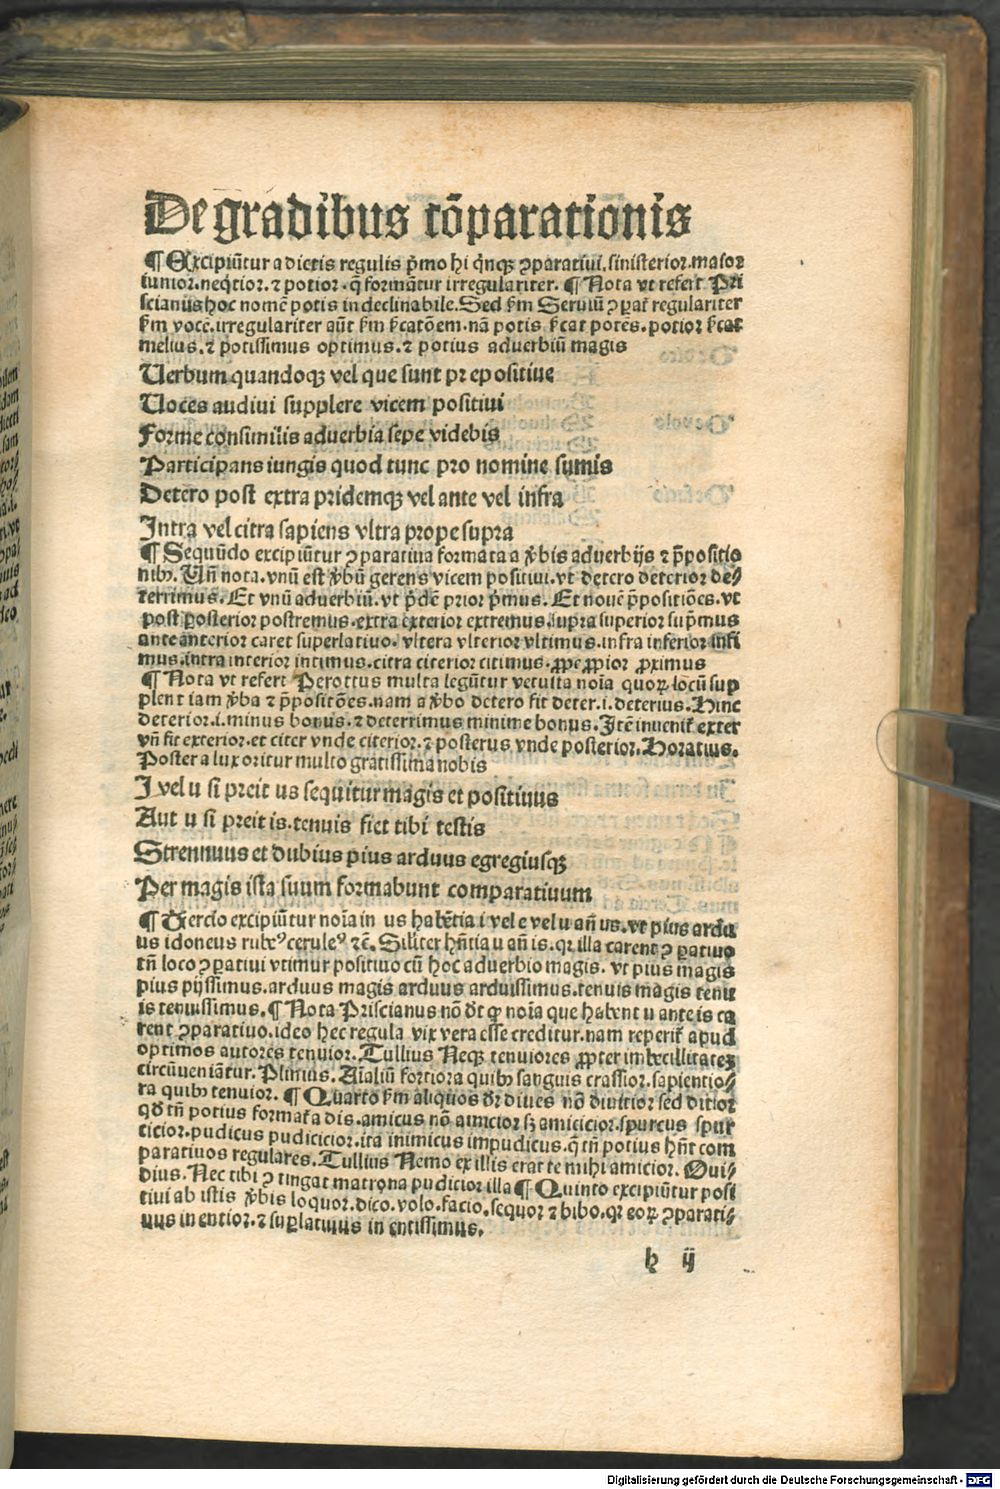 De gradibus cōparationis
¶ Excipiūtur a dictis regulis p̄mo hi q̇nqꝫ ꝯparatiui. sinisterior. maior
iunior. neq̄tior. ⁊ potior. q̄ formātur irregulariter. ¶ Nota vt refert Pri
scianus hoc nomē potis indeclinabile. Sed ẜm Seruiū ꝯꝑat̄ regulariter
ẜm vocē. irregulariter aūt ẜm ẜcatōem. nā potis ẜcat potēs. potior ẜcat
melius. ⁊ potissimus optimus. ⁊ potius aduerbiū magis
Uerbum quandoqꝫ vel que sunt prepositiue
Uoces audiui supplere vicem positiui
Forme consimilis aduerbia sepe videbis
Participans iungis quod tunc pro nomine sumis
Detero post extra pridemqꝫ vel ante vel infra
Intra vel citra sapiens vltra prope supra
¶ Sequūdo excipiūtur ꝯparatiua formata a v̄bis aduerbijs ⁊ p̄positio
nibꝫ. Un̄ nota. vnū est v̄bū gerens vicem positiui. vt detero deterior de⸗
terrimus. Et vnū aduerbiū. vt p̄dē prior p̄mus. Et nouē p̄positiōes. vt
post posterior postremus. extra exterior extremus. supra superior sup̄mus
ante anterior caret superlatiuo. vltera vlterior vltimus. infra inferior infi
mus. intra interior intimus. citra citerior citimus. ꝓpe ꝓpior ꝓximus
¶ Nota vt refert Perottus multa legūtur vetusta noīa quoꝝ locū sup
plent iam v̄ba ⁊ p̄positōes. nam a v̄bo detero fit deter. i. deterius. Hinc
deterior. i. minus bonus. ⁊ deterrimus minime bonus. Itē inuenit̄ exter
vn̄ fit exterior. et citer vnde citerior. ⁊ posterus vnde posterior. Horatius.
Postera lux oritur multo gratissima nobis
I vel u si preit us sequitur magis et positiuus
Aut u si preit is. tenuis fiet tibi testis
Strennuus et dubius pius arduus egregiusqꝫ
Per magis ista suum formabunt comparatiuum
¶ Tercio excipiūtur noīa in us habētia i vel e vel u an̄ us. vt pius ardu
us idoneus rubeꝰ ceruleꝰ ⁊c̄. Siliter hn̄tia u an̄ is. qr illa carent ꝯꝑatiuo
tn̄ loco ꝯꝑatiui vtimur positiuo cū hoc aduerbio magis. vt pius magis
pius pijssimus. arduus magis arduus arduissimus. tenuis magis tenu
is tenuissimus. ¶ Nota Priscianus nō dt̄ ꝙ noīa que habent u ante is ca
rent ꝯparatiuo. ideo hec regula vix vera esse creditur. nam reperit̄ apud
optimos autores tenuior. Tullius Neqꝫ tenuiores ꝓpter imbecillitatem
circūueniātur. Plinius. Aīaliū fortiora quibꝫ sanguis crassior. sapientio⸗
ra quibꝫ tenuior. ¶ Quarto ẜm aliquos dr̄ diues nō diuitior sed ditior
qd̄ tn̄ potius format̄ a dis. amicus nō amicior sꝫ amicicior. spurcus spur
cicior. pudicus pudicicior. ita inimicus impudicus. q̄ tn̄ potius hn̄t com
paratiuos regulares. Tullius Nemo ex illis erat te mihi amicior. Oui⸗
dius. Nec tibi ꝯtingat matrona pudicior illa ¶ Quinto excipiūtur posi
tiui ab istis v̄bis loquor. dico. volo. facio. sequor ⁊ bibo. qr eoꝝ ꝯparati⸗
uus in entior. ⁊ suꝑlatiuus in entissimus.
h ij
Digitalisierung gefördert durch die Deutsche Forschungsgemeinschaft - DFG